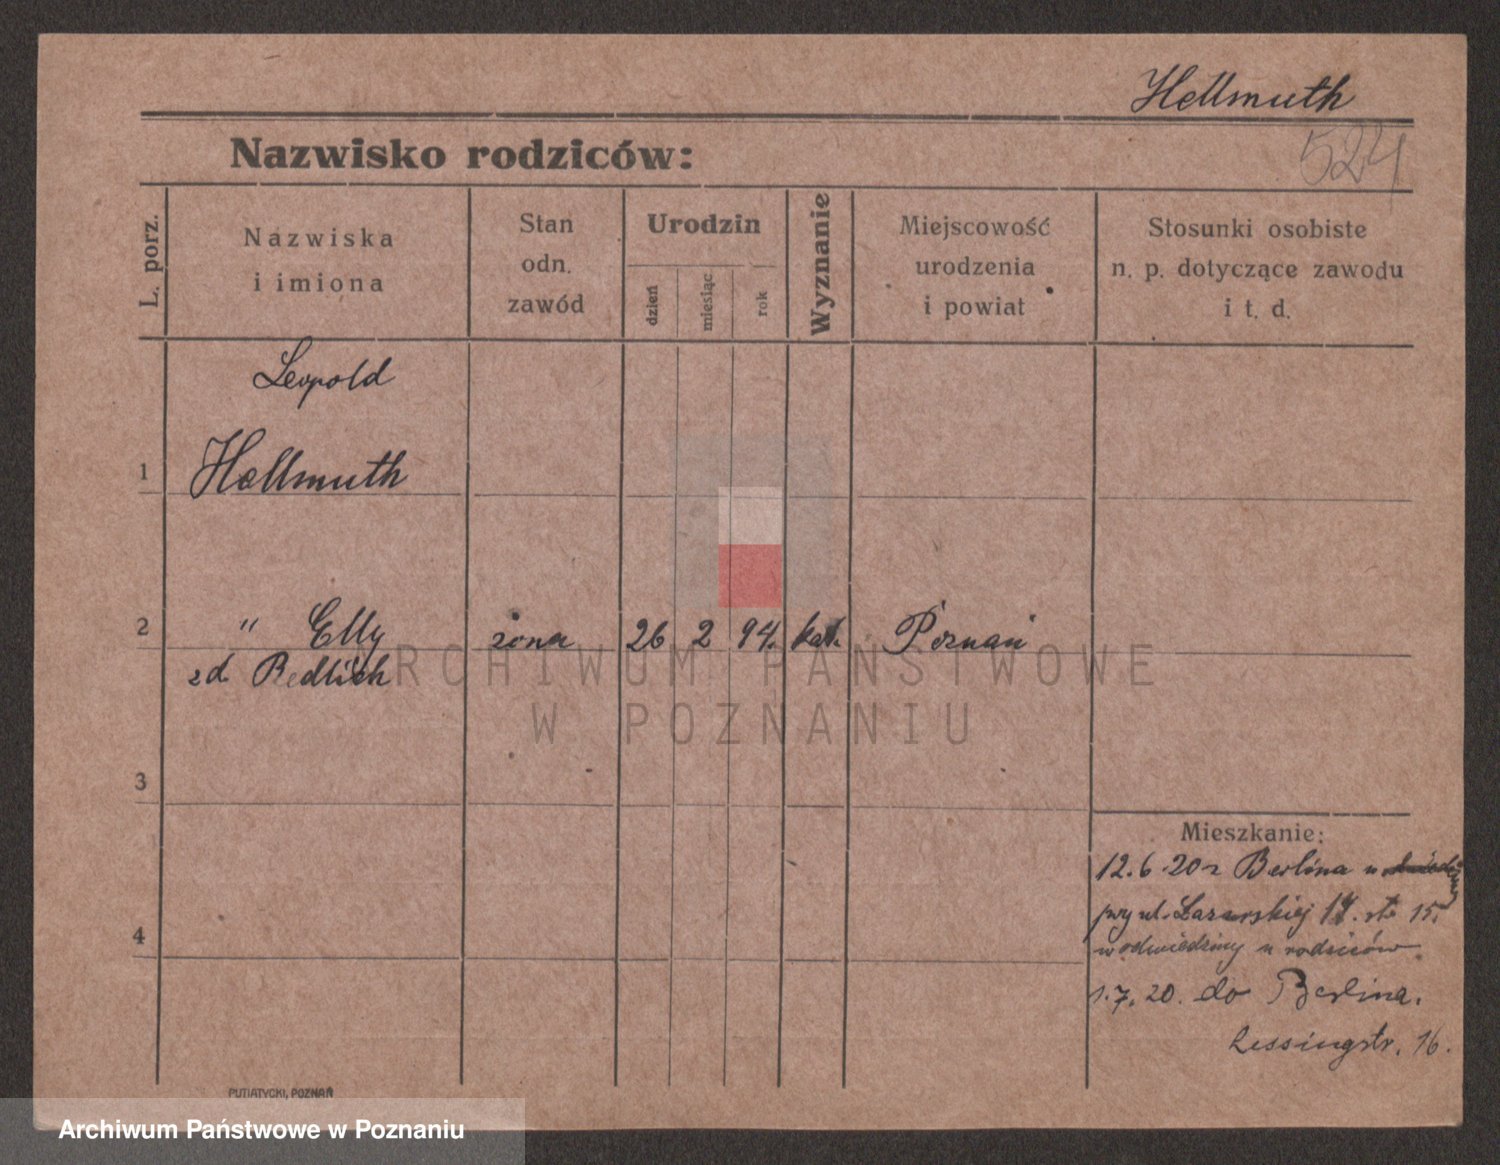 Hellmuth
524
Nazwisko rodziców:
L. porz.
Nazwiska
i imiona
Stan
odn.
zawód
Urodzin
dzień
miesiąc
rok
Wyznanie
Miejscowość
urodzenia
i powiat
Stosunki osobiste
n. p. dotyczące zawodu
i t. d.
Leopold
1 Hellmuth
2 " Elly żona 26 2 94. kat. Poznań
zd Redlich
ARCHIWUM PAŃSTWOWE
W POZNANIU
3
4
Mieszkanie:
12.6.20 z Berlina
przy ul. Lazarskiej 17. st. 15.
w odwiedziny u rodziców.
1.7.20. do Berlina.
Lessingstr. 16.
PUTIATYCKI, POZNAŃ
Archiwum Państwowe w Poznaniu